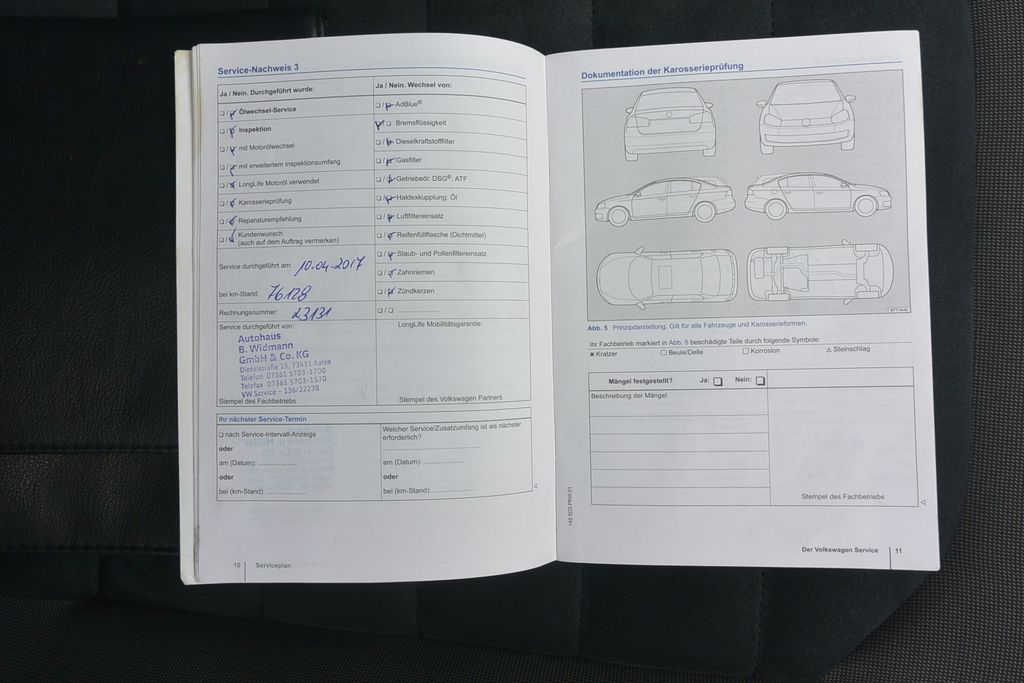 Service-Nachweis 3
Ja / Nein. Durchgeführt wurde:
❑ / ❑ Ölwechsel-Service
❑ / ❑ Inspektion
❑ / ❑ mit Motorölwechsel
❑ / ❑ mit erweitertem Inspektionsumfang
❑ / ❑ LongLife Motoröl verwendet
❑ / ❑ Karosserieprüfung
❑ / ❑ Reparaturempfehlung
❑ / ❑ Kundenwunsch
(auch auf dem Auftrag vermerken)
Service durchgeführt am: 10.04.2017
bei km-Stand: 76128
Rechnungsnummer: 23131
Service durchgeführt von:
Autohaus
B. Widmann
GmbH & Co. KG
Dieselstraße 15, 73431 Aalen
Telefon 07361 5703-1700
Telefax 07361 5703-1570
VW Service - 136/22238
Stempel des Fachbetriebs
Ja / Nein. Wechsel von:
❑ / ❑ AdBlue®
❑ / ❑ Bremsflüssigkeit
❑ / ❑ Dieselkraftstofffilter
❑ / ❑ Gasfilter
❑ / ❑ Getriebeöl: DSG®, ATF
❑ / ❑ Haldexkupplung: Öl
❑ / ❑ Luftfiltereinsatz
❑ / ❑ Reifenfüllflasche (Dichtmittel)
❑ / ❑ Staub- und Pollenfiltereinsatz
❑ / ❑ Zahnriemen
❑ / ❑ Zündkerzen
❑ / ❑ ..............................
LongLife Mobilitätsgarantie:
Stempel des Volkswagen Partners
Ihr nächster Service-Termin
❑ nach Service-Intervall-Anzeige
oder
am (Datum): ...............
oder
bei (km-Stand): ...............
Welcher Service/Zusatzumfang ist als nächster
erforderlich?
..............................
am (Datum): ...............
oder
bei (km-Stand): ...............
10 Serviceplan
Dokumentation der Karosserieprüfung
Abb. 5 Prinzipdarstellung. Gilt für alle Fahrzeuge und Karosserieformen.
Ihr Fachbetrieb markiert in Abb. 5 beschädigte Teile durch folgende Symbole:
✖ Kratzer ○ Beule/Delle □ Korrosion △ Steinschlag
Mängel festgestellt? Ja: ❑ Nein: ❑
Beschreibung der Mängel:
Stempel des Fachbetriebs
Der Volkswagen Service 11